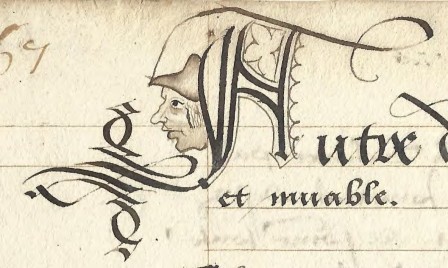 Autre
et muable.